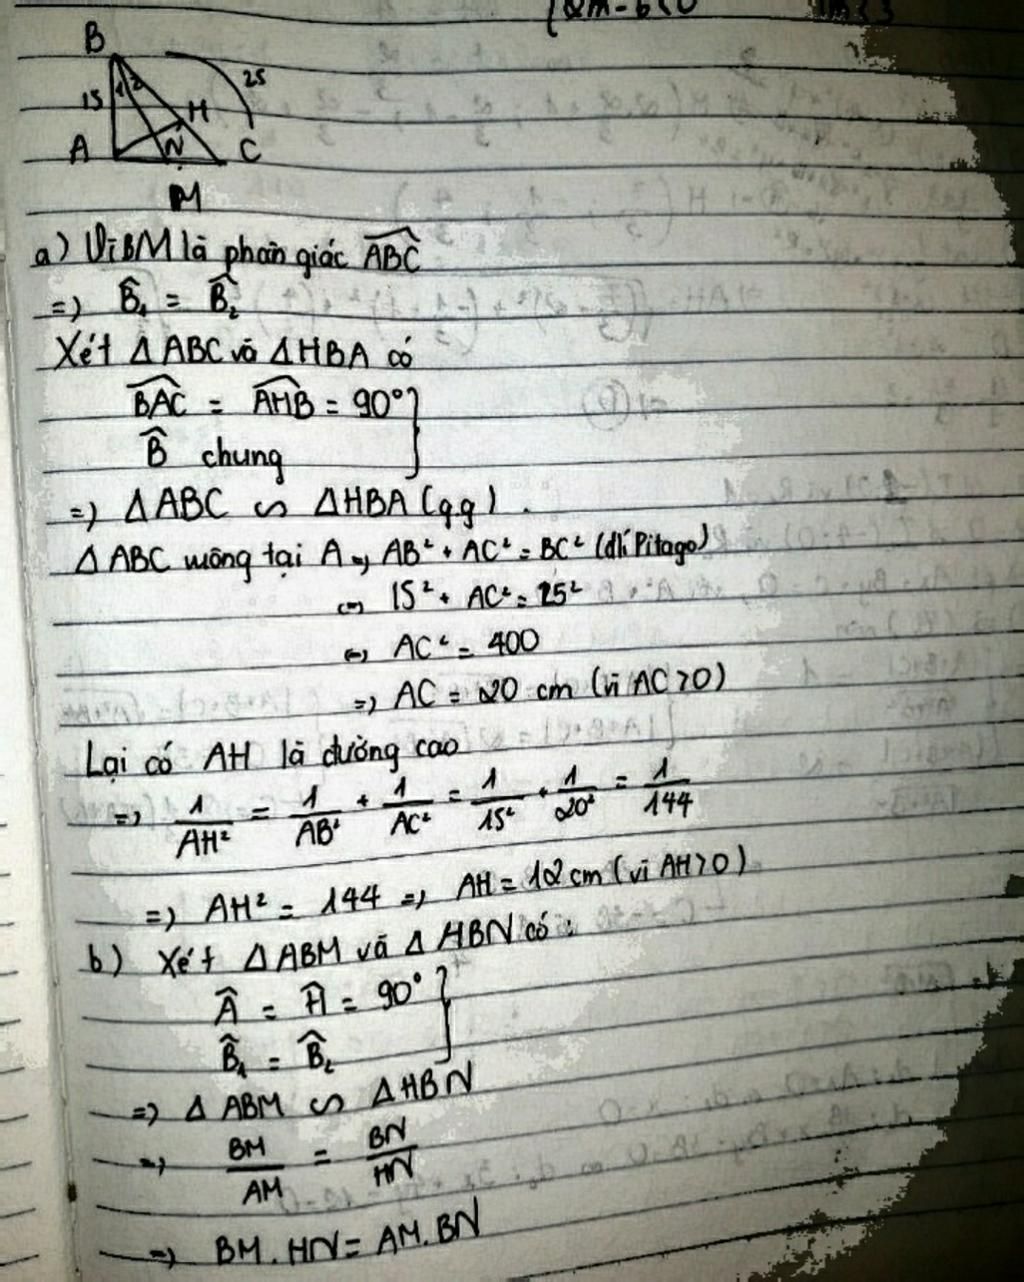 {2m-6<0
B
1 2
25
15
H
A N C
M
a) Vì BM là phân giác \widehat{ABC}
=> \widehat{B}₁ = \widehat{B}₂
Xét Δ ABC và Δ HBA có
\widehat{BAC} = \widehat{AHB} = 90° }
\widehat{B} chung
=> Δ ABC ∽ Δ HBA (gg).
Δ ABC vuông tại A => AB² + AC² = BC² (đlí Pitago)
<=> 15² + AC² = 25²
<=> AC² = 400
=> AC = 20 cm (vì AC>0)
Lại có AH là đường cao
=> 1/AH² = 1/AB² + 1/AC² = 1/15² + 1/20² = 1/144
=> AH² = 144 => AH = 12 cm (vì AH>0)
b) Xét Δ ABM và Δ HBN có :
\widehat{A} = \widehat{H} = 90° }
\widehat{B}₁ = \widehat{B}₂
=> Δ ABM ∽ Δ HBN
=> BM/AM = BN/HN
=> BM.HN = AM.BN